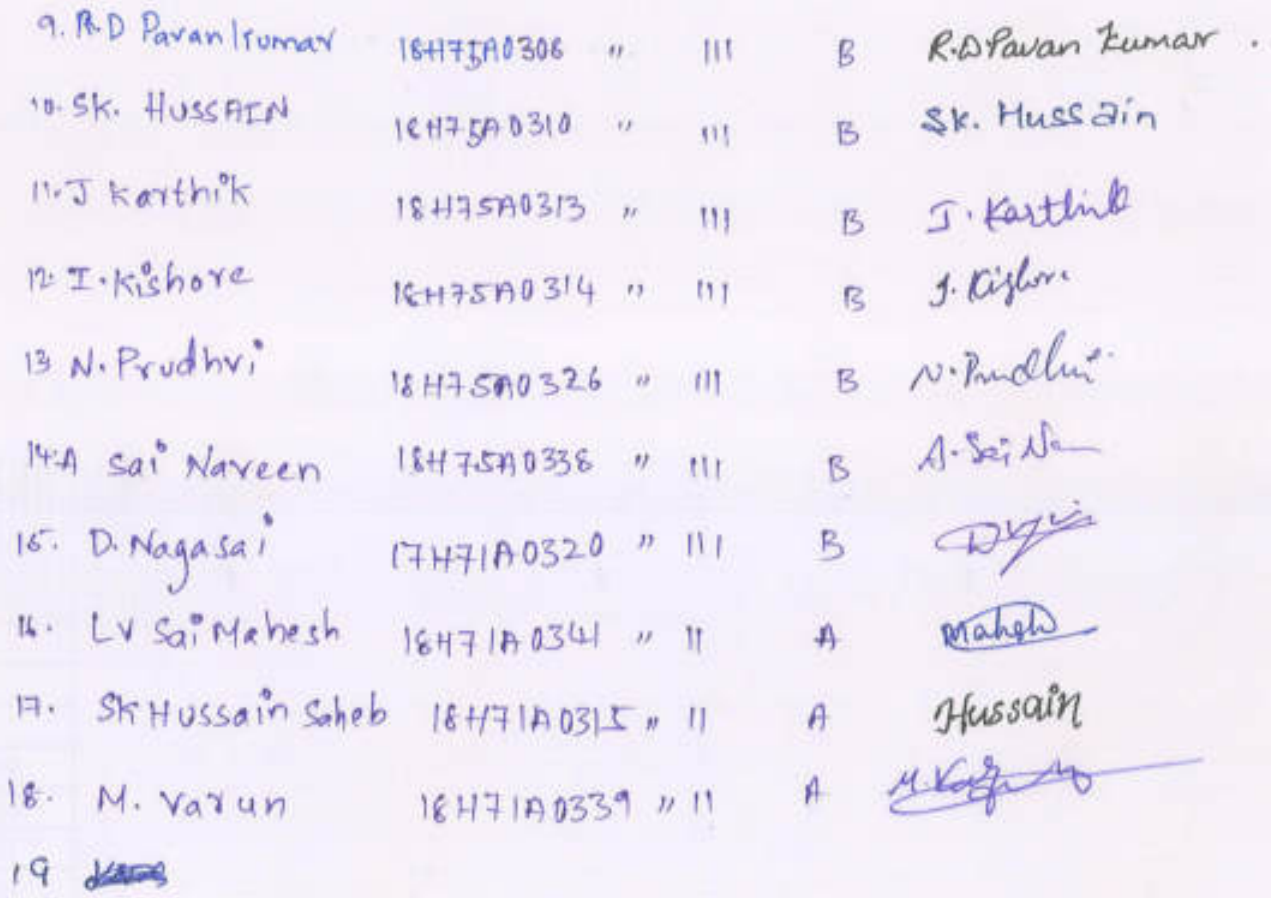 9. R.D Pavan Kumar 18H75A0308 " III B R.D Pavan Kumar .
10. SK. HUSSAIN 18H75A0310 " III B SK. Hussain
11. J Karthik 18H75A0313 " III B J. Karthik
12. I. Kishore 18H75A0314 " III B I. Kishore
13 N. Prudhvi 18H75A0326 " III B N. Prudhvi
14. A Sai Naveen 18H75A0338 " III B A. Sai
15. D. Nagasai 17H71A0320 " III B
16. LV Sai Mahesh 18H71A0341 " II A Mahesh
17. SK Hussain Saheb 18H71A0315 " II A Hussain
18. M. Varun 18H71A0339 " II A M.
19